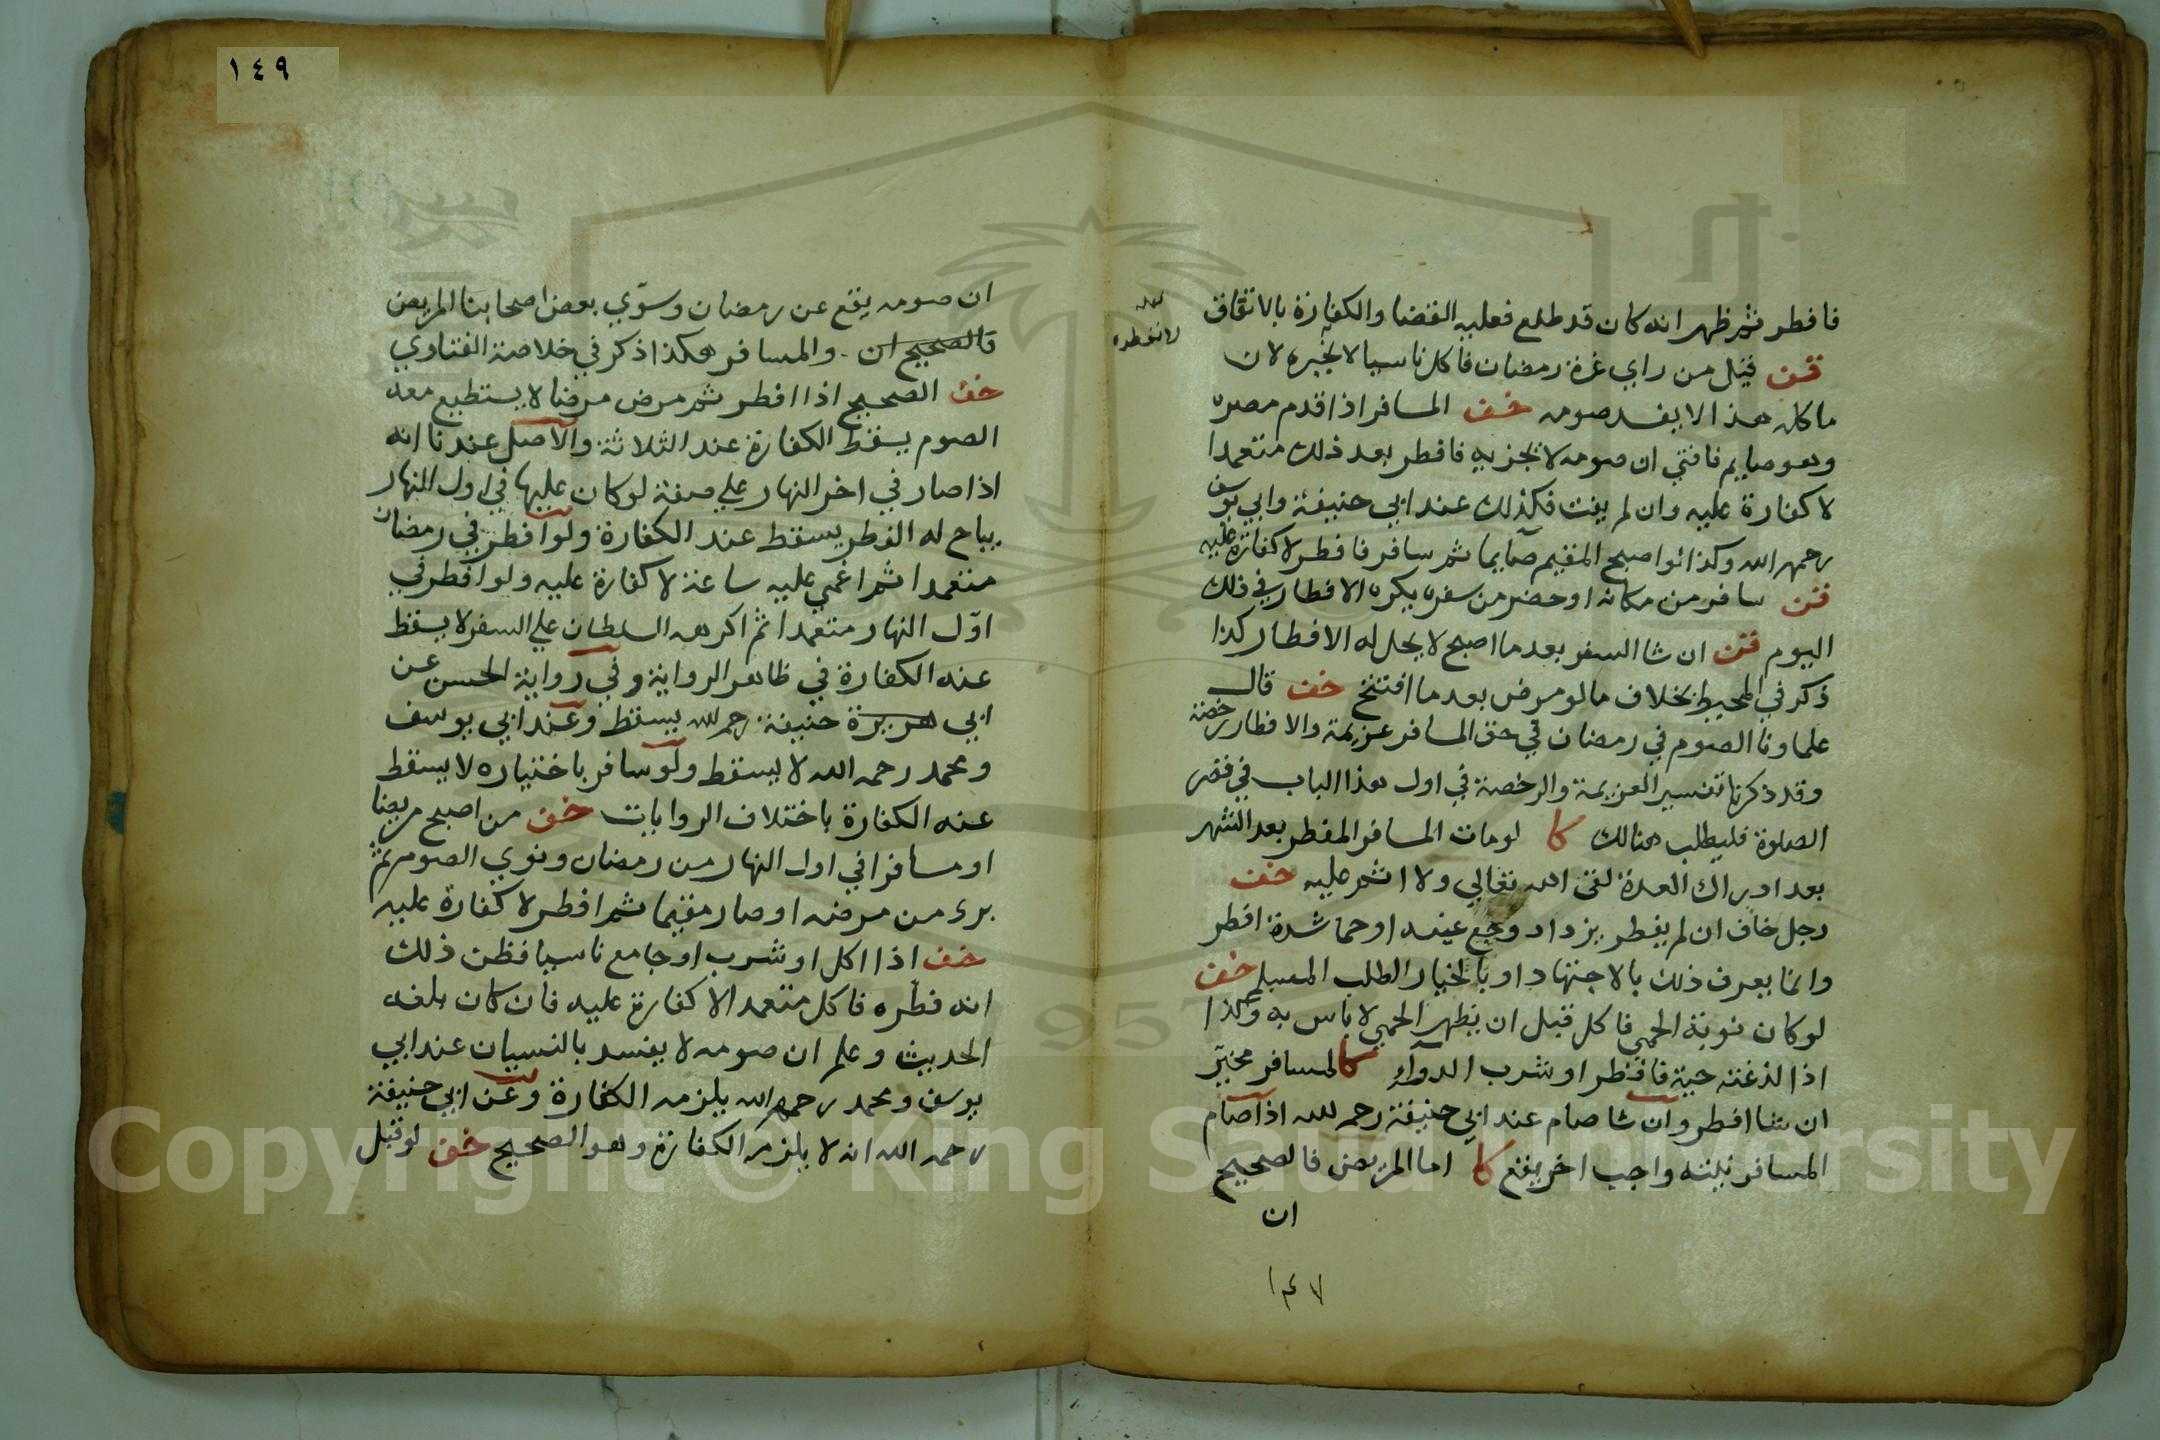 فافطر ثم ظهر انه كان قد طلع فعليه القضا والكفارة بالاتفاق
قن قيل من راي غرة رمضان فاكل ناسيا لا يخبره لان
ماكله هذا لا يفسد صومه خف المسافر اذا قدم مصره
وهو صايم فافتي ان صومه لا يجزيه فافطر بعد ذلك متعمدا
لا كفارة عليه وان لم يفت فكذلك عند ابي حنيفة وابي يوسف
رحمهم الله وكذا لو اصبح المقيم صايما ثم سافر فافطر لا كفارة عليه
قن سافر من مكانه او حضر من سفره يكره الافطار في ذلك
اليوم قن ان شا السفر بعد ما اصبح لا يحل له الافطار كذا
ذكر في المحيط بخلاف ما لو مرض بعد ما افتتح خف قال
علماونا الصوم في رمضان في حق المسافر عزيمة والافطار رخصة
وقد ذكرنا تفسير العزيمة والرخصة في اول هذا الباب في قصر
الصلوة فليطلب هنالك كا لو مات المسافر المفطر بعد الشهر
بعد ادراك العدة لقي الله تعالي ولا اثم عليه خف
رجل خاف ان لم يفطر يزداد وجع عينه او حما شدة افطر
وانما يعرف ذلك بالاجتهاد او باخبار الطبيب المسلم خف
لو كان نوبة الحمي فاكل قبل ان يظهر الحمي لا باس به وكذا
اذا لدغته حية فافطر او شرب الدواء كا المسافر مخير
ان شا افطر وان شا صام عند ابي حنيفة رحمه الله اذا صام
المسافر بنية واجب اخر يقع كا اما المريض فالصحيح
ان
١٤٧
لعله
لا تفطره
١٤٩
ان صومه يقع عن رمضان وسوّي بعض اصحابنا المريض
فالصحيح ان والمسافر هكذا ذكر في خلاصة الفتاوي
خف الصحيح اذا افطر ثم مرض مرضا لا يستطيع معه
الصوم يسقط الكفارة عند الثلاثة والاصل عندنا انه
اذا صار في اخر النهار علي صفة لو كان عليها في اول النهار
يباح له الفطر يسقط عند الكفارة ولو افطر في رمضان
متعمدا ثم اغمي عليه ساعة لا كفارة عليه ولو افطر في
اوّل النهار متعمدا ثم اكرهه السلطان علي السفر لا يسقط
عنه الكفارة في ظاهر الرواية وفي رواية الحسن عن
ابي هريرة حنيفة رحمه الله يسقط وعند ابي يوسف
ومحمد رحمه الله لا يسقط ولو سافر باختياره لا يسقط
عنه الكفارة باختلاف الروايات خف من اصبح مريضا
او مسافرا في اول النهار من رمضان ونوي الصوم ثم
برء من مرضه او صار مقيما ثم افطر لا كفارة عليه
خف اذا اكل او شرب او جامع ناسيا فظن ذلك
انه فطره فاكل متعمدا لا كفارة عليه فان كان بلغه
الحديث وعلم ان صومه لا يفسد بالنسيان عند ابي
يوسف ومحمد رحمهم الله يلزمه الكفارة وعن ابي حنيفة
رحمه الله انه لا يلزمه الكفارة وهو الصحيح خف لو قبل
Copyright © King Saud University
1957